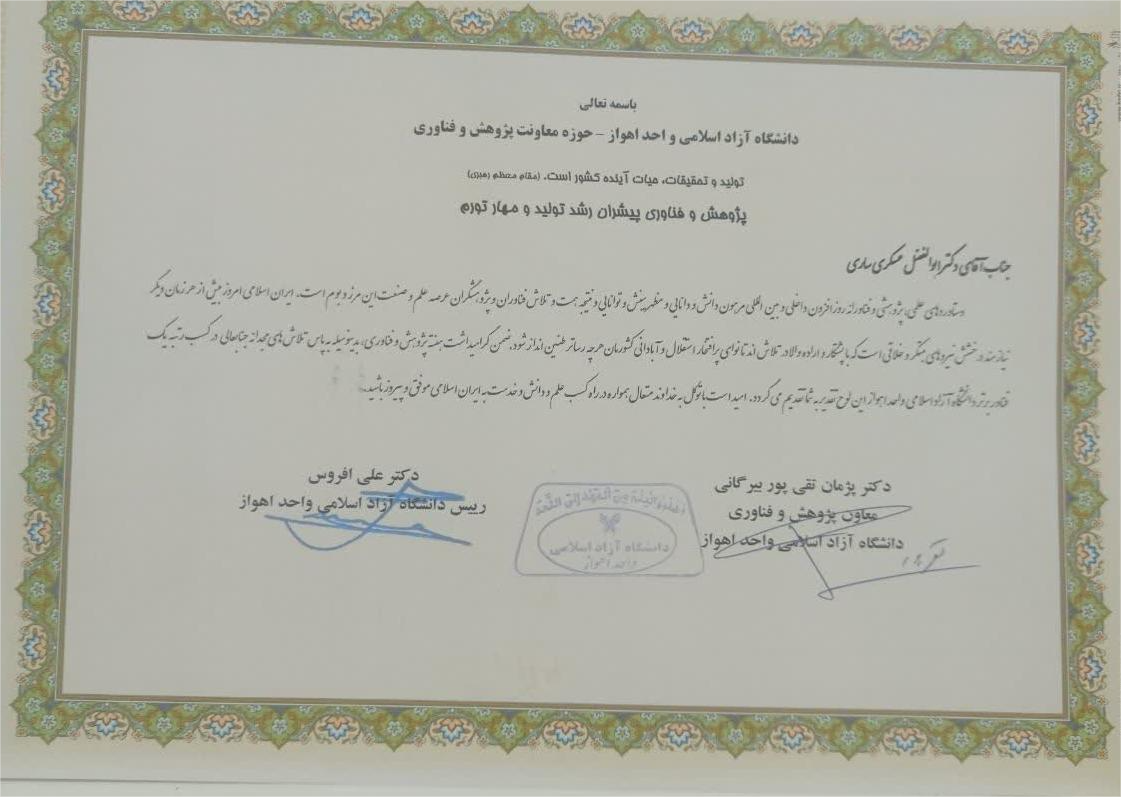 باسمه تعالی
دانشگاه آزاد اسلامی و احد اهواز – حوزه معاونت پژوهش و فناوری
تولید و تحقیقات، حیات آینده کشور است. (مقام معظم رهبری)
پژوهش و فناوری پیشران رشد تولید و مهار تورم
جناب آقای دکتر ابوالفضل عسکری ساری
دستاوردهای علمی، پژوهشی و فناورانه روزافزون داخلی و بین المللی مرهون دانش و دانایی و مظهر بینش و توانایی و نتیجه همت و تلاش فناوران و پژوهشگران عرصه علم و صنعت این مرز و بوم است. ایران اسلامی امروز بیش از هر زمان دیگر
نیازمند درخشش نیروهای مبتکر و خلاقی است که با پشتکار و اراده والا در تلاش اند تا نوای پر افتخار استقلال و آبادانی کشورمان هر چه رساتر طنین انداز شود. ضمن گرامیداشت هفته پژوهش و فناوری، بدینوسیله به پاس تلاش های مجدانه جنابعالی در کسب رتبه یک
فناور برتر دانشگاه آزاد اسلامی واحد اهواز این لوح تقدیر به شما تقدیم می گردد. امید است با توکل به خداوند متعال همواره در راه کسب علم و دانش و خدمت به ایران اسلامی موفق و پیروز باشید.
دکتر پژمان تقی پور بیرگانی
معاون پژوهش و فناوری
دانشگاه آزاد اسلامی واحد اهواز
دکتر علی افروس
رییس دانشگاه آزاد اسلامی واحد اهواز
دانشگاه آزاد اسلامی
واحد اهواز